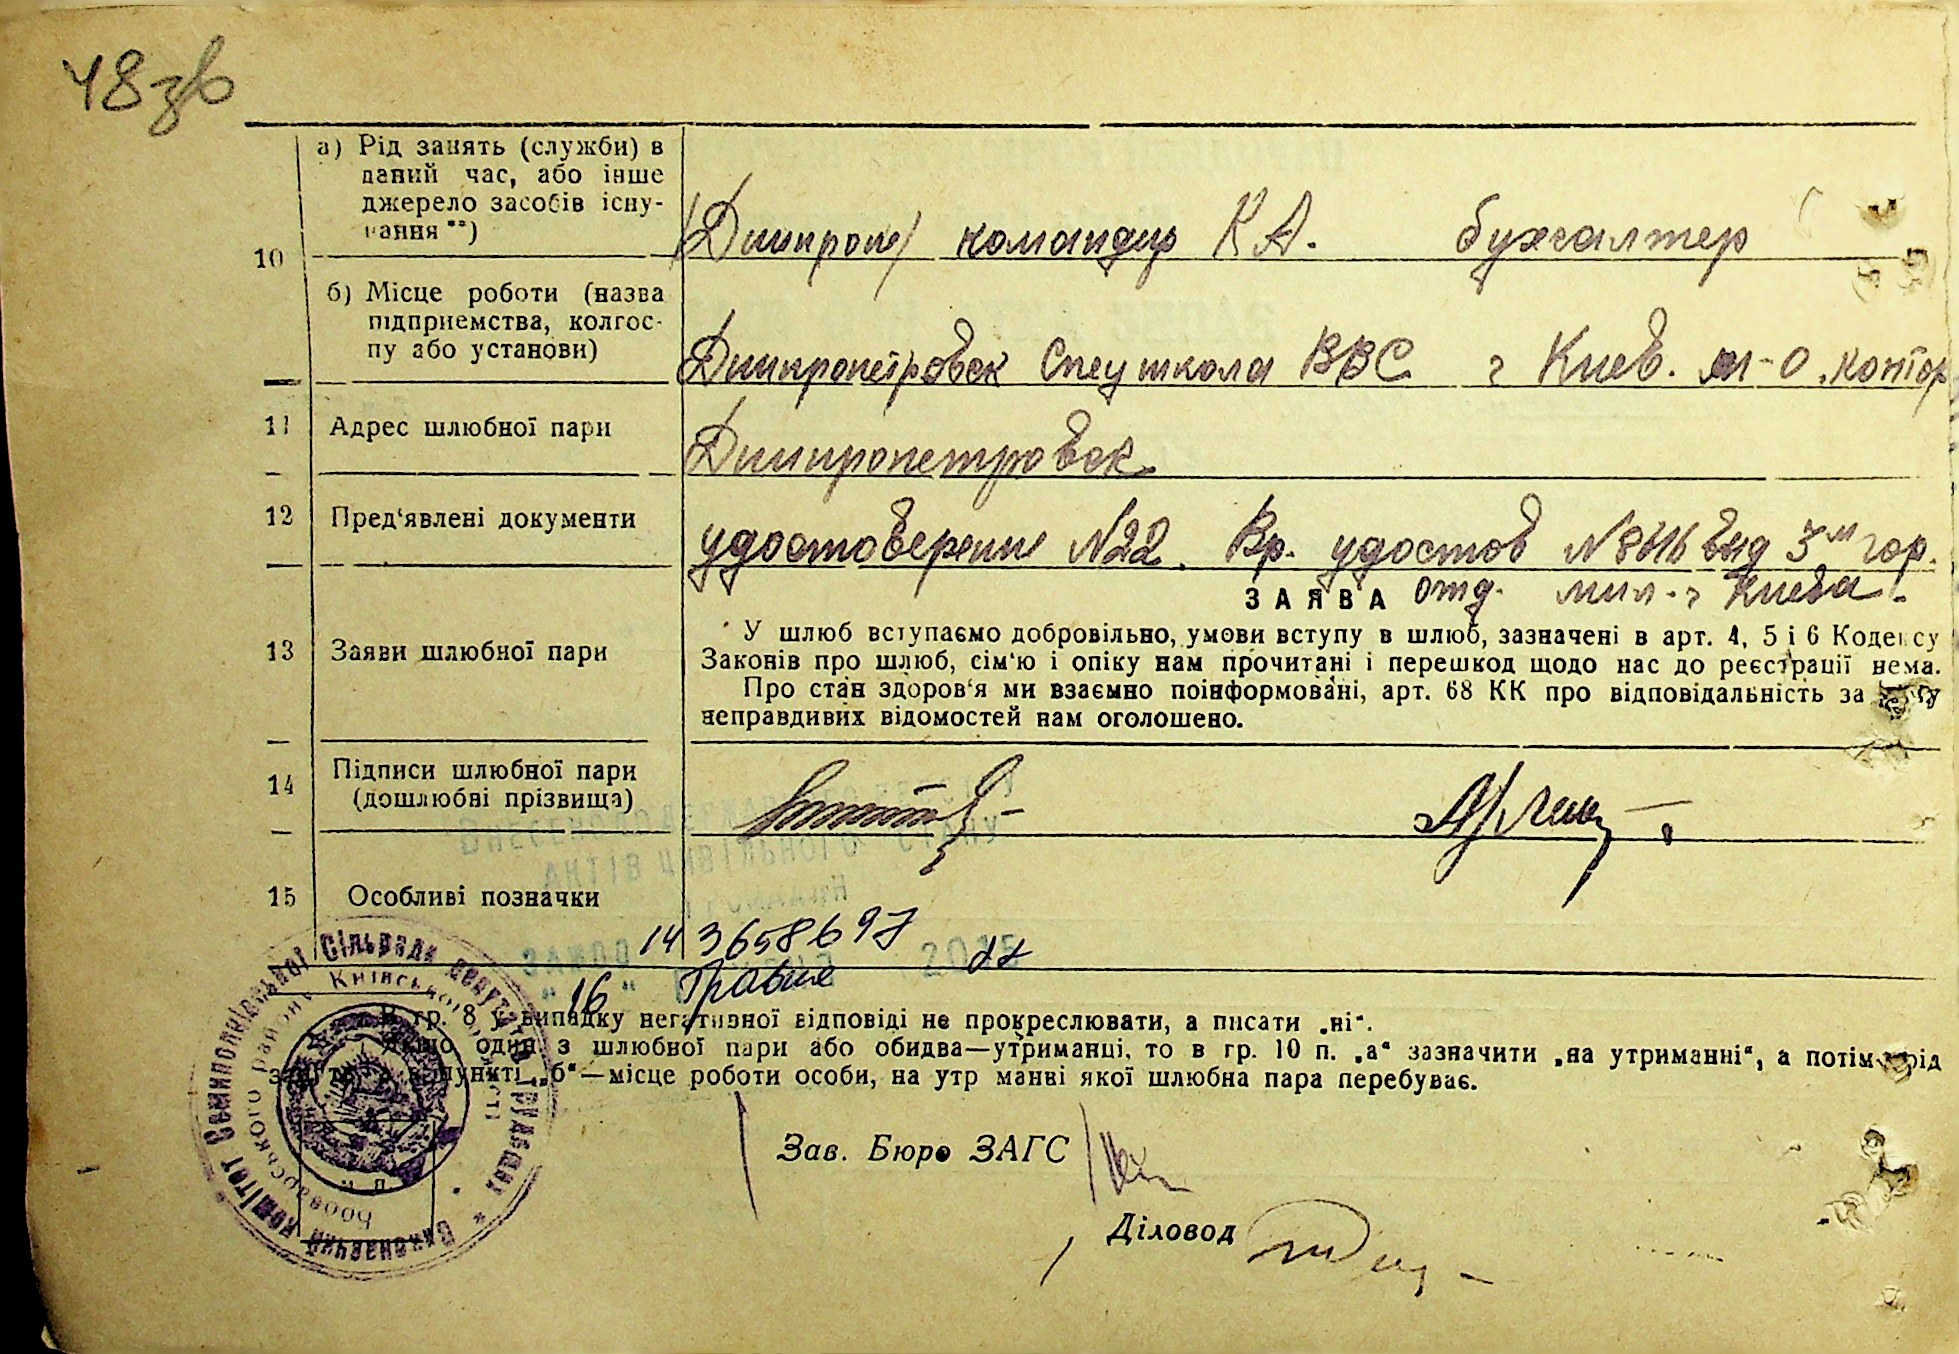 48зв
а) Рід занять (служби) в
даний час, або інше
джерело засобів існу-
вання **)
(Днипроп) командир КА. бухгалтер
10
б) Місце роботи (назва
підприємства, колгос-
пу або установи)
Днипропетровск Спецшкола ВВС г Киев. контор
11 Адрес шлюбної пари
Днипропетровск
12 Пред'явлені документи
удостоверение №22. Вр. удостов № 8616 вид 3м гор.
отд. мил. г Киева.
ЗАЯВА
13 Заяви шлюбної пари
У шлюб вступаємо добровільно, умови вступу в шлюб, зазначені в арт. 4, 5 і 6 Кодексу
Законів про шлюб, сім'ю і опіку нам прочитані і перешкод щодо нас до реєстрації нема.
Про стан здоров'я ми взаємно поінформовані, арт. 68 КК про відповідальність за дачу
неправдивих відомостей нам оголошено.
14 Підписи шлюбної пари
(дошлюбні прізвища)
ВНЕСЕНО ДО ДЕРЖАВНОГО РЕЄСТРУ
АКТІВ ЦИВІЛЬНОГО СТАНУ
ГРОМАДЯН
15 Особливі позначки
14 3658697
ЗА №00
"16" травня 2015
В гр. 8 у випадку негативної відповіді не прокреслювати, а писати „ні".
Якщо один з шлюбної пари або обидва—утриманці, то в гр. 10 п. „а" зазначити „на утриманні", а потім рід
в пункті „б"—місце роботи особи, на утр манні якої шлюбна пара перебуває.
Виконавчий комітет Семиполківської Сільради депутатів трудящих
Броварського району Київської області
М. П.
Зав. Бюро ЗАГС
Діловод